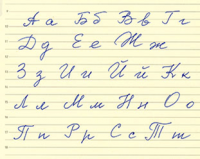 Аа Бб Вв Гг
Дд Ее Жж
Зз Ии Йй Кк
Лл Мм Нн Оо
Пп Рр Сс Тт